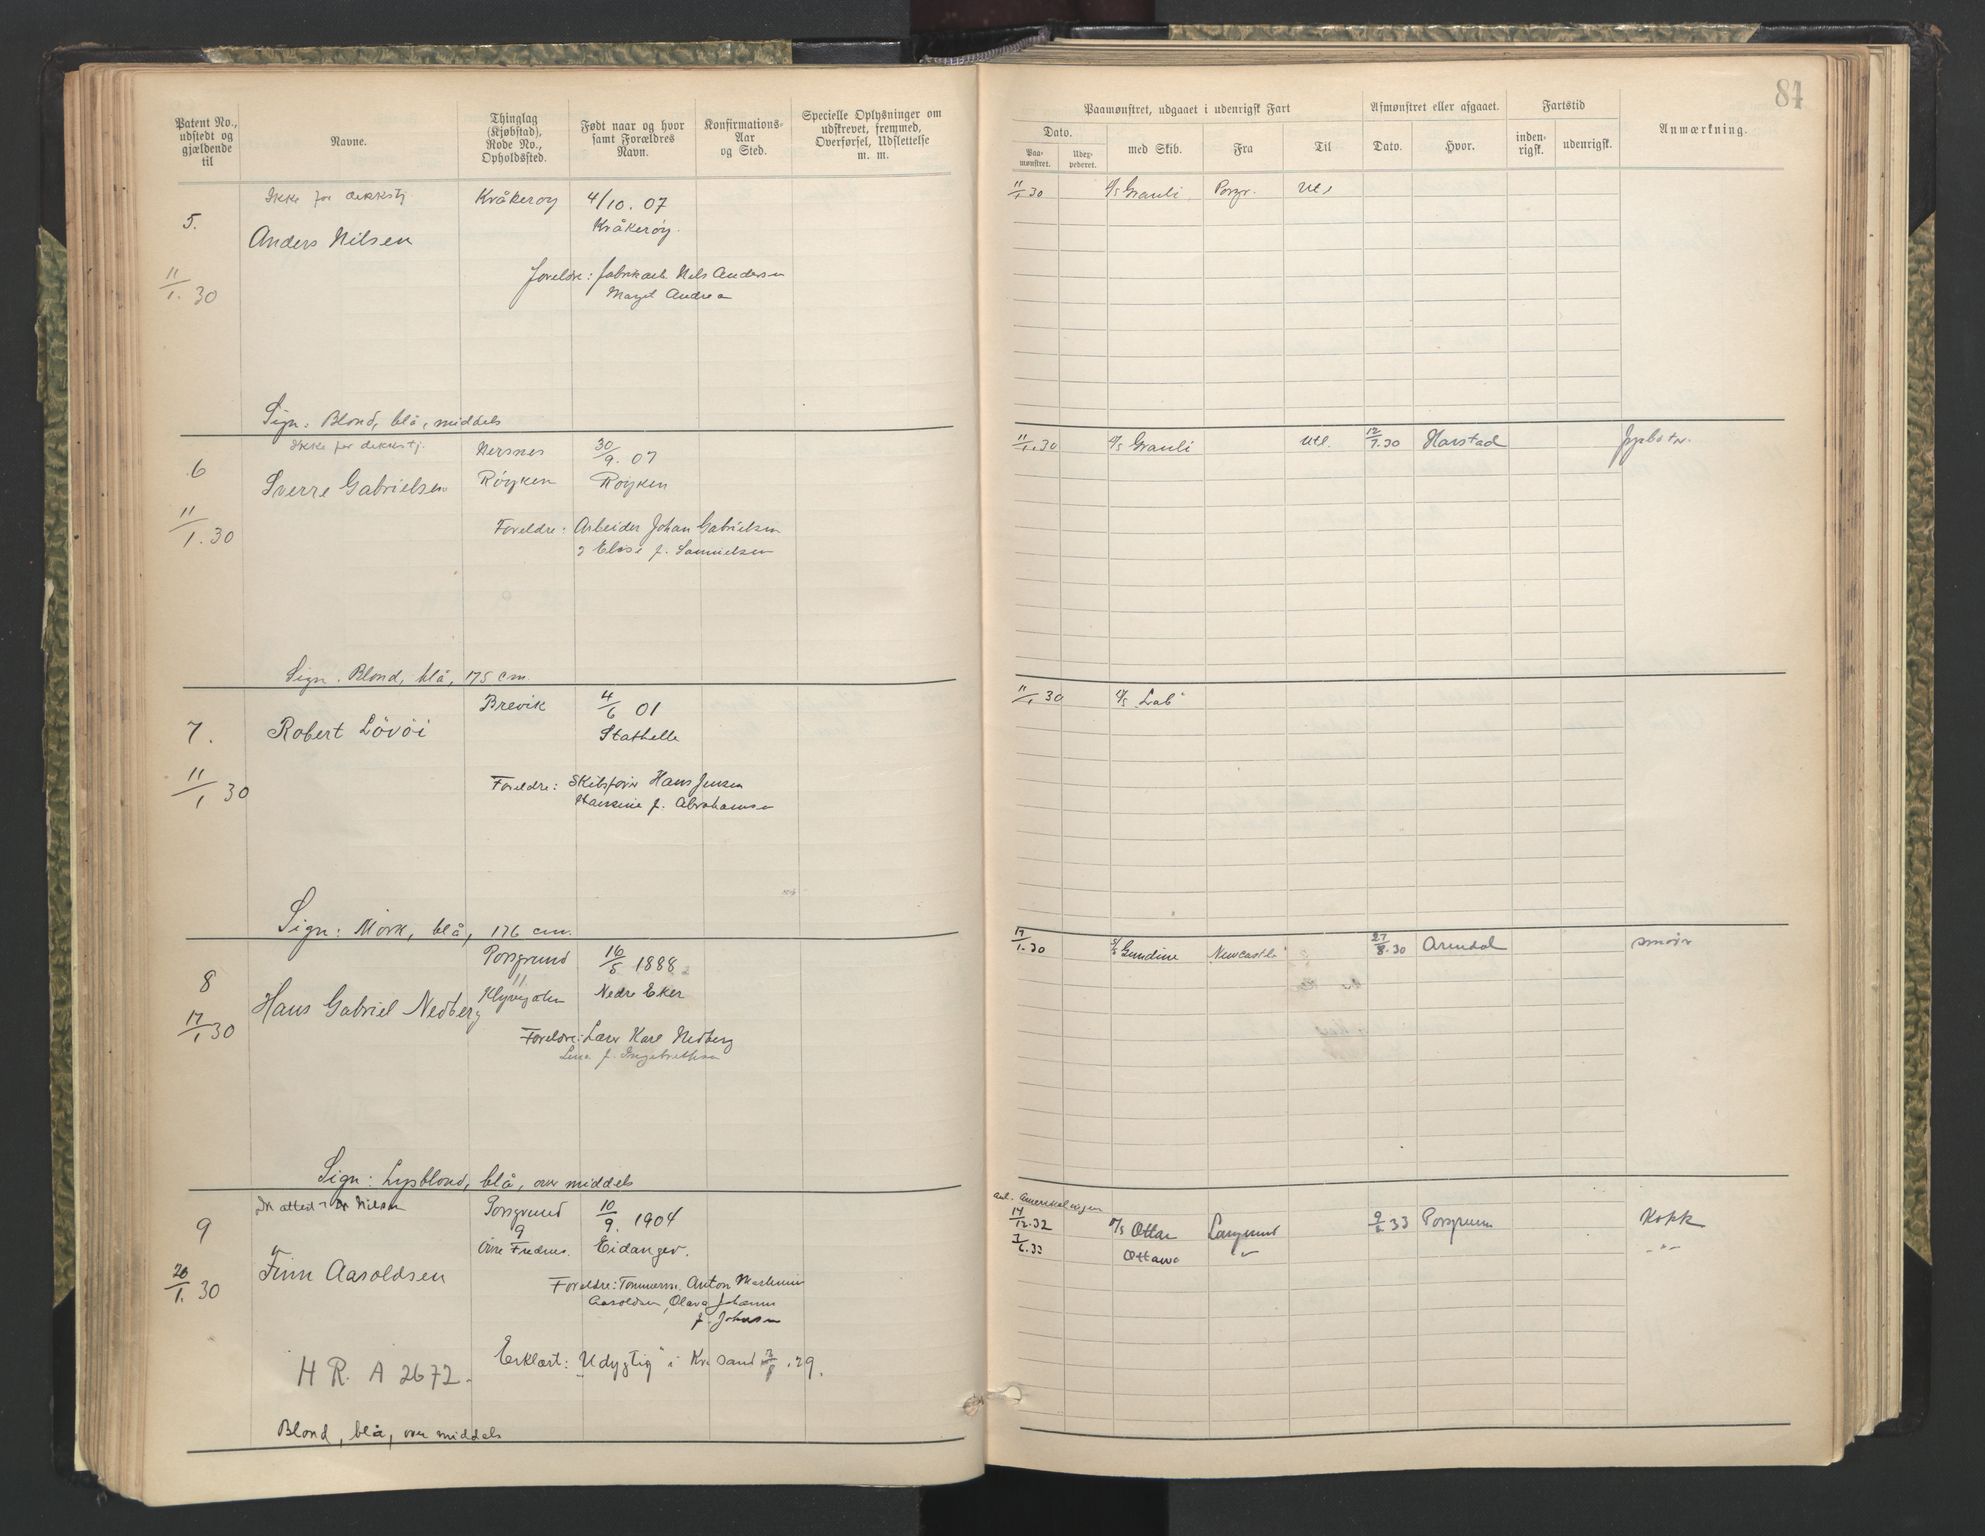 84
Patent No., udstedt og gjældende til
Navne.
Thinglag (Kjøbstad), Rode No., Opholdssted.
Født naar og hvor samt Forældres Navn.
Konfirmations-Aar og Sted.
Specielle Oplysninger om udskrevet, fremmed, Overførsel, Udslettelse m. m.
Paamønstret, udgaaet i udenrigsk Fart
Afmønstret eller afgaaet.
Fartstid
Anmærkning.
Dato.
Paa-mønstret.
med Skib.
Fra
Til
Dato.
Hvor.
inden-rigsk.
udenrigsk.
Ikke for dekkstj. Kråkerøy 4/10. 07
5. Anders Nilsen Kråkerøy.
11/1. 30
Foreldre: fabrikarb. Nils Andersen
Margit Andrea
Sign: Blond, blå, middels
11/1 30 Grauli Porsgr. Utl
Ikke for dekkstj. Nersnes 30/9. 07
6 Sverre Gabrielsen Røyken Røyken
11/1. 30
Foreldre: Arbeider Johan Gabrielsen
f. Samuelsen
Sign. Blond, blå, 175 cm.
11/1. 30 Grauli Utl. 12/7. 30 Harstad
Brevik 4/6 01
7. Robert Lövöi Stathelle
11/1 30
Foreldre: Hans Jensen
f. Abrahamsen
Sign: Mörk, blå, 176 cm.
11/1 30
Porsgrund 16/5 1888
11
8 Hans Gabriel Nedberg Nedre Eker
17/1 30
Foreldre: Karl Nedberg
f. Ingebrethsen
Sign: Lysblond, blå, over middels
17/1. 30 Gundine Newcastle 27/8. 30 Arendal smørr
Nilsen Porsgrund 10/9. 1904
9
Eidanger.
9 Finn Aasoldsen
26/1. 30
Foreldre: Tømmerm. Anton
Aasoldsen, Olava
f. Johnsen
Erklært: "Udygtig" i Kr. sand .29.
H R. A 2672.
Blond, blå, over middels
14/12.32 Ottar Langesund 33 Porsgrunn Kokk
33 Ottawa